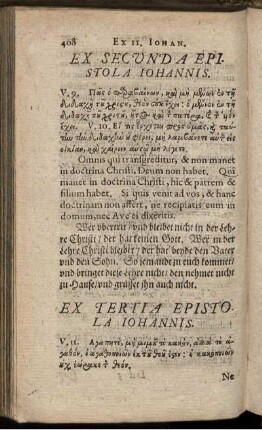 408 EX II. IOHAN.
EX SECUNDA EPI-
STOLA IOHANNIS.
V. 9. Πᾶς ὁ παραβαίνων, καὶ μὴ μένων ἐν τῇ
διδαχῇ τοῦ χριστοῦ, θεὸν οὐκ ἔχει: ὁ μένων ἐν τῇ
διδαχῇ τοῦ χριστοῦ, οὗτος καὶ τὸν πατέρα, καὶ τὸν υἱὸν
ἔχει. V. 10. Εἴ τις ἔρχεται πρὸς ὑμᾶς, καὶ
ταύτην τὴν διδαχὴν οὐ φέρει, μὴ λαμβάνετε αὐτὸν εἰς
οἰκίαν, καὶ χαίρειν αὐτῷ μὴ λέγετε.
Omnis qui transgreditur, & non manet
in doctrina Christi, Deum non habet. Qui
manet in doctrina Christi, hic & patrem &
filium habet. Si quis venit ad vos, & hanc
doctrinam non affert, ne recipiatis eum in
domum, nec Ave ei dixeritis.
Wer übertritt und bleibet nicht in der Lehre
Christi, der hat keinen Gott. Wer in der
Lehre Christi bleibet, der hat beyde den Vater
und den Sohn. So jemand zu euch kommet,
und bringet diese Lehre nicht, den nehmet nicht
zu Hause, und grüsset ihn auch nicht.
EX TERTIA EPISTO-
LA IOHANNIS.
V. 11. Ἀγαπητὲ, μὴ μιμοῦ τὸ κακὸν, ἀλλὰ τὸ ἀ-
γαθόν. ὁ ἀγαθοποιῶν ἐκ τοῦ θεοῦ ἐστιν: ὁ κακοποιῶν
οὐχ ἑώρακε τὸν θεόν.
Ne